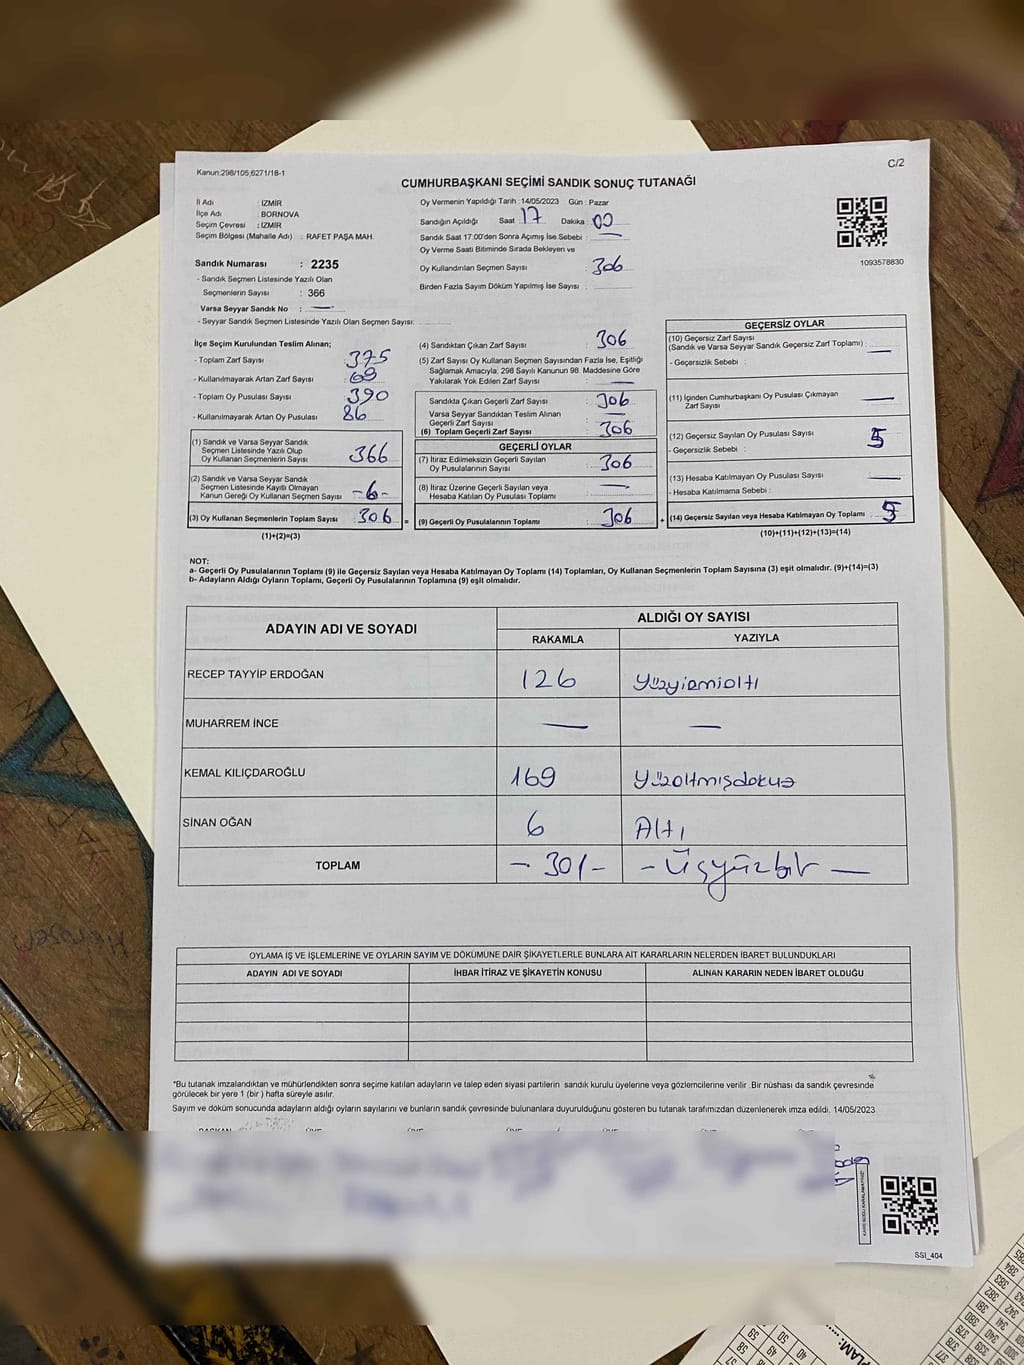 Kanun:298/105,6271/18-1
C/2
CUMHURBAŞKANI SEÇİMİ SANDIK SONUÇ TUTANAĞI
İl Adı : İZMİR
İlçe Adı : BORNOVA
Seçim Çevresi : İZMİR
Seçim Bölgesi (Mahalle Adı) : RAFET PAŞA MAH.
Sandık Numarası : 2235
- Sandık Seçmen Listesinde Yazılı Olan
Seçmenlerin Sayısı : 366
Varsa Seyyar Sandık No : —
- Seyyar Sandık Seçmen Listesinde Yazılı Olan Seçmen Sayısı:
Oy Vermenin Yapıldığı Tarih : 14/05/2023 Gün : Pazar
Sandığın Açıldığı Saat 17 Dakika 00
Sandık Saat 17:00'den Sonra Açımış İse Sebebi : —
Oy Verme Saati Bitiminde Sırada Bekleyen ve
Oy Kullandırılan Seçmen Sayısı : 306
Birden Fazla Sayım Döküm Yapılmış İse Sayısı :
1093578830
İlçe Seçim Kurulundan Teslim Alınan;
- Toplam Zarf Sayısı 375
- Kullanılmayarak Artan Zarf Sayısı 69
- Toplam Oy Pusulası Sayısı 390
- Kullanılmayarak Artan Oy Pusulası 86
(1) Sandık ve Varsa Seyyar Sandık
Seçmen Listesinde Yazılı Olup
Oy Kullanan Seçmenlerin Sayısı 366
(2) Sandık ve Varsa Seyyar Sandık
Seçmen Listesinde Kayıtlı Olmayan
Kanun Gereği Oy Kullanan Seçmen Sayısı -6-
(3) Oy Kullanan Seçmenlerin Toplam Sayısı 306 =
(1)+(2)=(3)
(4) Sandıktan Çıkan Zarf Sayısı 306
(5) Zarf Sayısı Oy Kullanan Seçmen Sayısından Fazla İse, Eşitliği
Sağlamak Amacıyla; 298 Sayılı Kanunun 98. Maddesine Göre
Yakılarak Yok Edilen Zarf Sayısı : —
Sandıkta Çıkan Geçerli Zarf Sayısı : 306
Varsa Seyyar Sandıktan Teslim Alınan
Geçerli Zarf Sayısı : —
(6) Toplam Geçerli Zarf Sayısı : 306
GEÇERLİ OYLAR
(7) İtiraz Edilmeksizin Geçerli Sayılan
Oy Pusulalarının Sayısı : 306
(8) İtiraz Üzerine Geçerli Sayılan veya
Hesaba Katılan Oy Pusulası Toplamı : —
(9) Geçerli Oy Pusulalarının Toplamı : 306 +
GEÇERSİZ OYLAR
(10) Geçersiz Zarf Sayısı
(Sandık ve Varsa Seyyar Sandık Geçersiz Zarf Toplamı) : —
- Geçersizlik Sebebi :
(11) İçinden Cumhurbaşkanı Oy Pusulası Çıkmayan
Zarf Sayısı : —
(12) Geçersiz Sayılan Oy Pusulası Sayısı : 5
- Geçersizlik Sebebi :
(13) Hesaba Katılmayan Oy Pusulası Sayısı : —
- Hesaba Katılmama Sebebi :
(14) Geçersiz Sayılan veya Hesaba Katılmayan Oy Toplamı : 5
(10)+(11)+(12)+(13)=(14)
NOT:
a- Geçerli Oy Pusulasının Toplamı (9) ile Geçersiz Sayılan veya Hesaba Katılmayan Oy Toplamı (14) Toplamları, Oy Kullanan Seçmenlerin Toplam Sayısına (3) eşit olmalıdır. (9)+(14)=(3)
b- Adayların Aldığı Oyların Toplamı, Geçerli Oy Pusulalarının Toplamına (9) eşit olmalıdır.
ADAYIN ADI VE SOYADI ALDIĞI OY SAYISI
RAKAMLA YAZIYLA
RECEP TAYYİP ERDOĞAN 126 Yüzyirmialtı
MUHARREM İNCE — —
KEMAL KILIÇDAROĞLU 169 Yüzaltmışdokuz
SİNAN OĞAN 6 Altı
TOPLAM - 301 - - Üçyüzbir —
OYLAMA İŞ VE İŞLEMLERİNE VE OYLARIN SAYIM VE DÖKÜMÜNE DAİR ŞİKAYETLERLE BUNLARA AİT KARARLARIN NELERDEN İBARET BULUNDUKLARI
ADAYIN ADI VE SOYADI İHBAR İTİRAZ VE ŞİKAYETİN KONUSU ALINAN KARARIN NEDEN İBARET OLDUĞU
*Bu tutanak imzalandıktan ve mühürlendikten sonra seçime katılan adayların ve talep eden siyasi partilerin sandık kurulu üyelerine veya gözlemcilerine verilir .Bir nüshası da sandık çevresinde
görülecek bir yere 1 (bir ) hafta süreyle asılır.
Sayım ve döküm sonucunda adayların aldığı oyların sayılarını ve bunların sandık çevresinde bulunanlara duyurulduğunu gösteren bu tutanak tarafımızdan düzenlenerek imza edildi. 14/05/2023
SSI_404